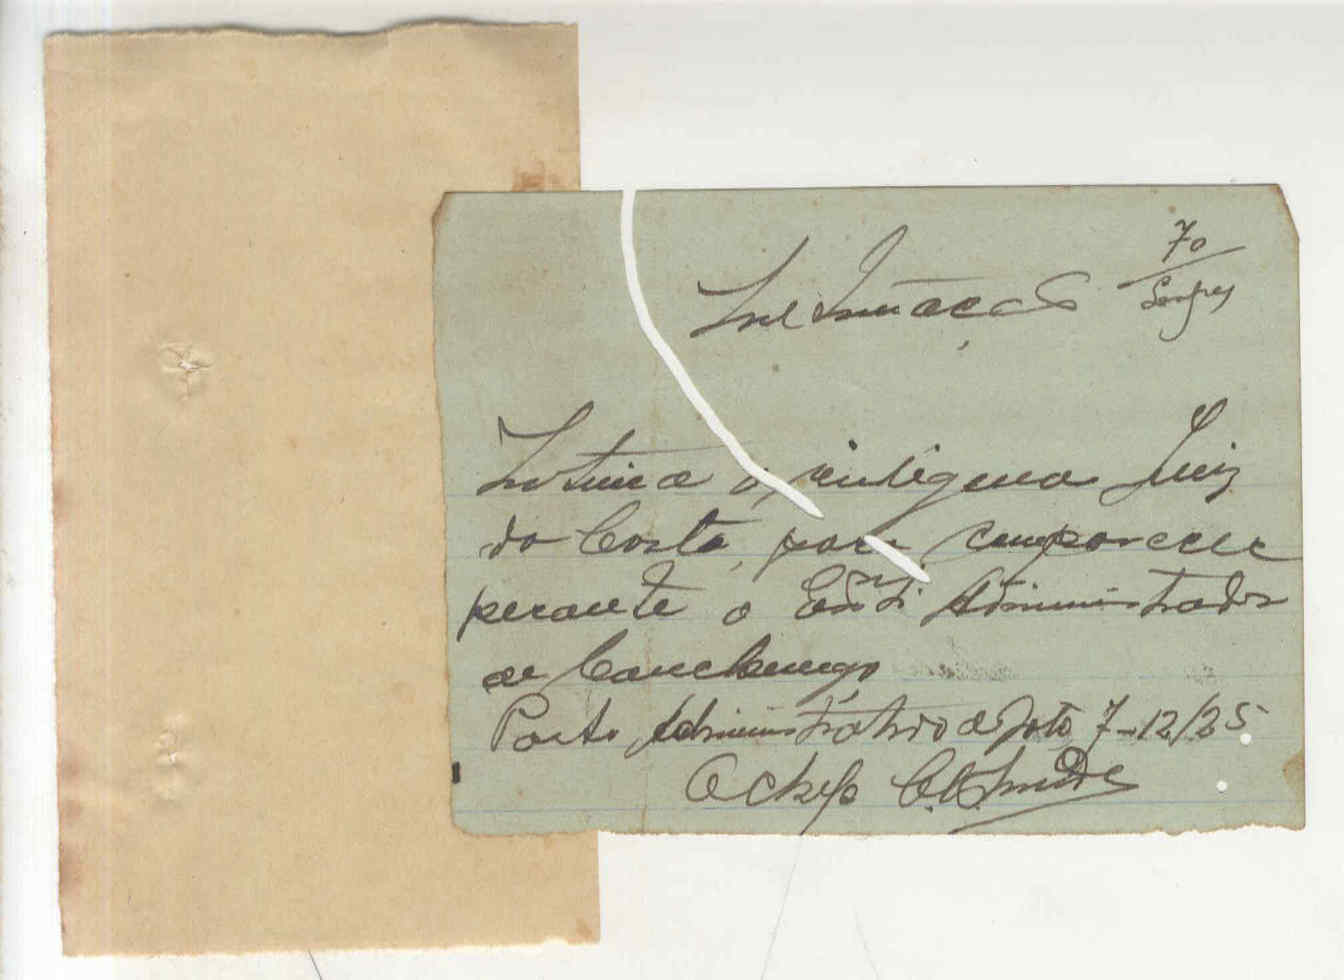 Intimação
70
Intima o indígena Luiz
da Costa, para comparecer
perante o Exmº Sr. Administrador
de Canchungo
Posto Administrativo de Jolo 7-12/25
O chefe